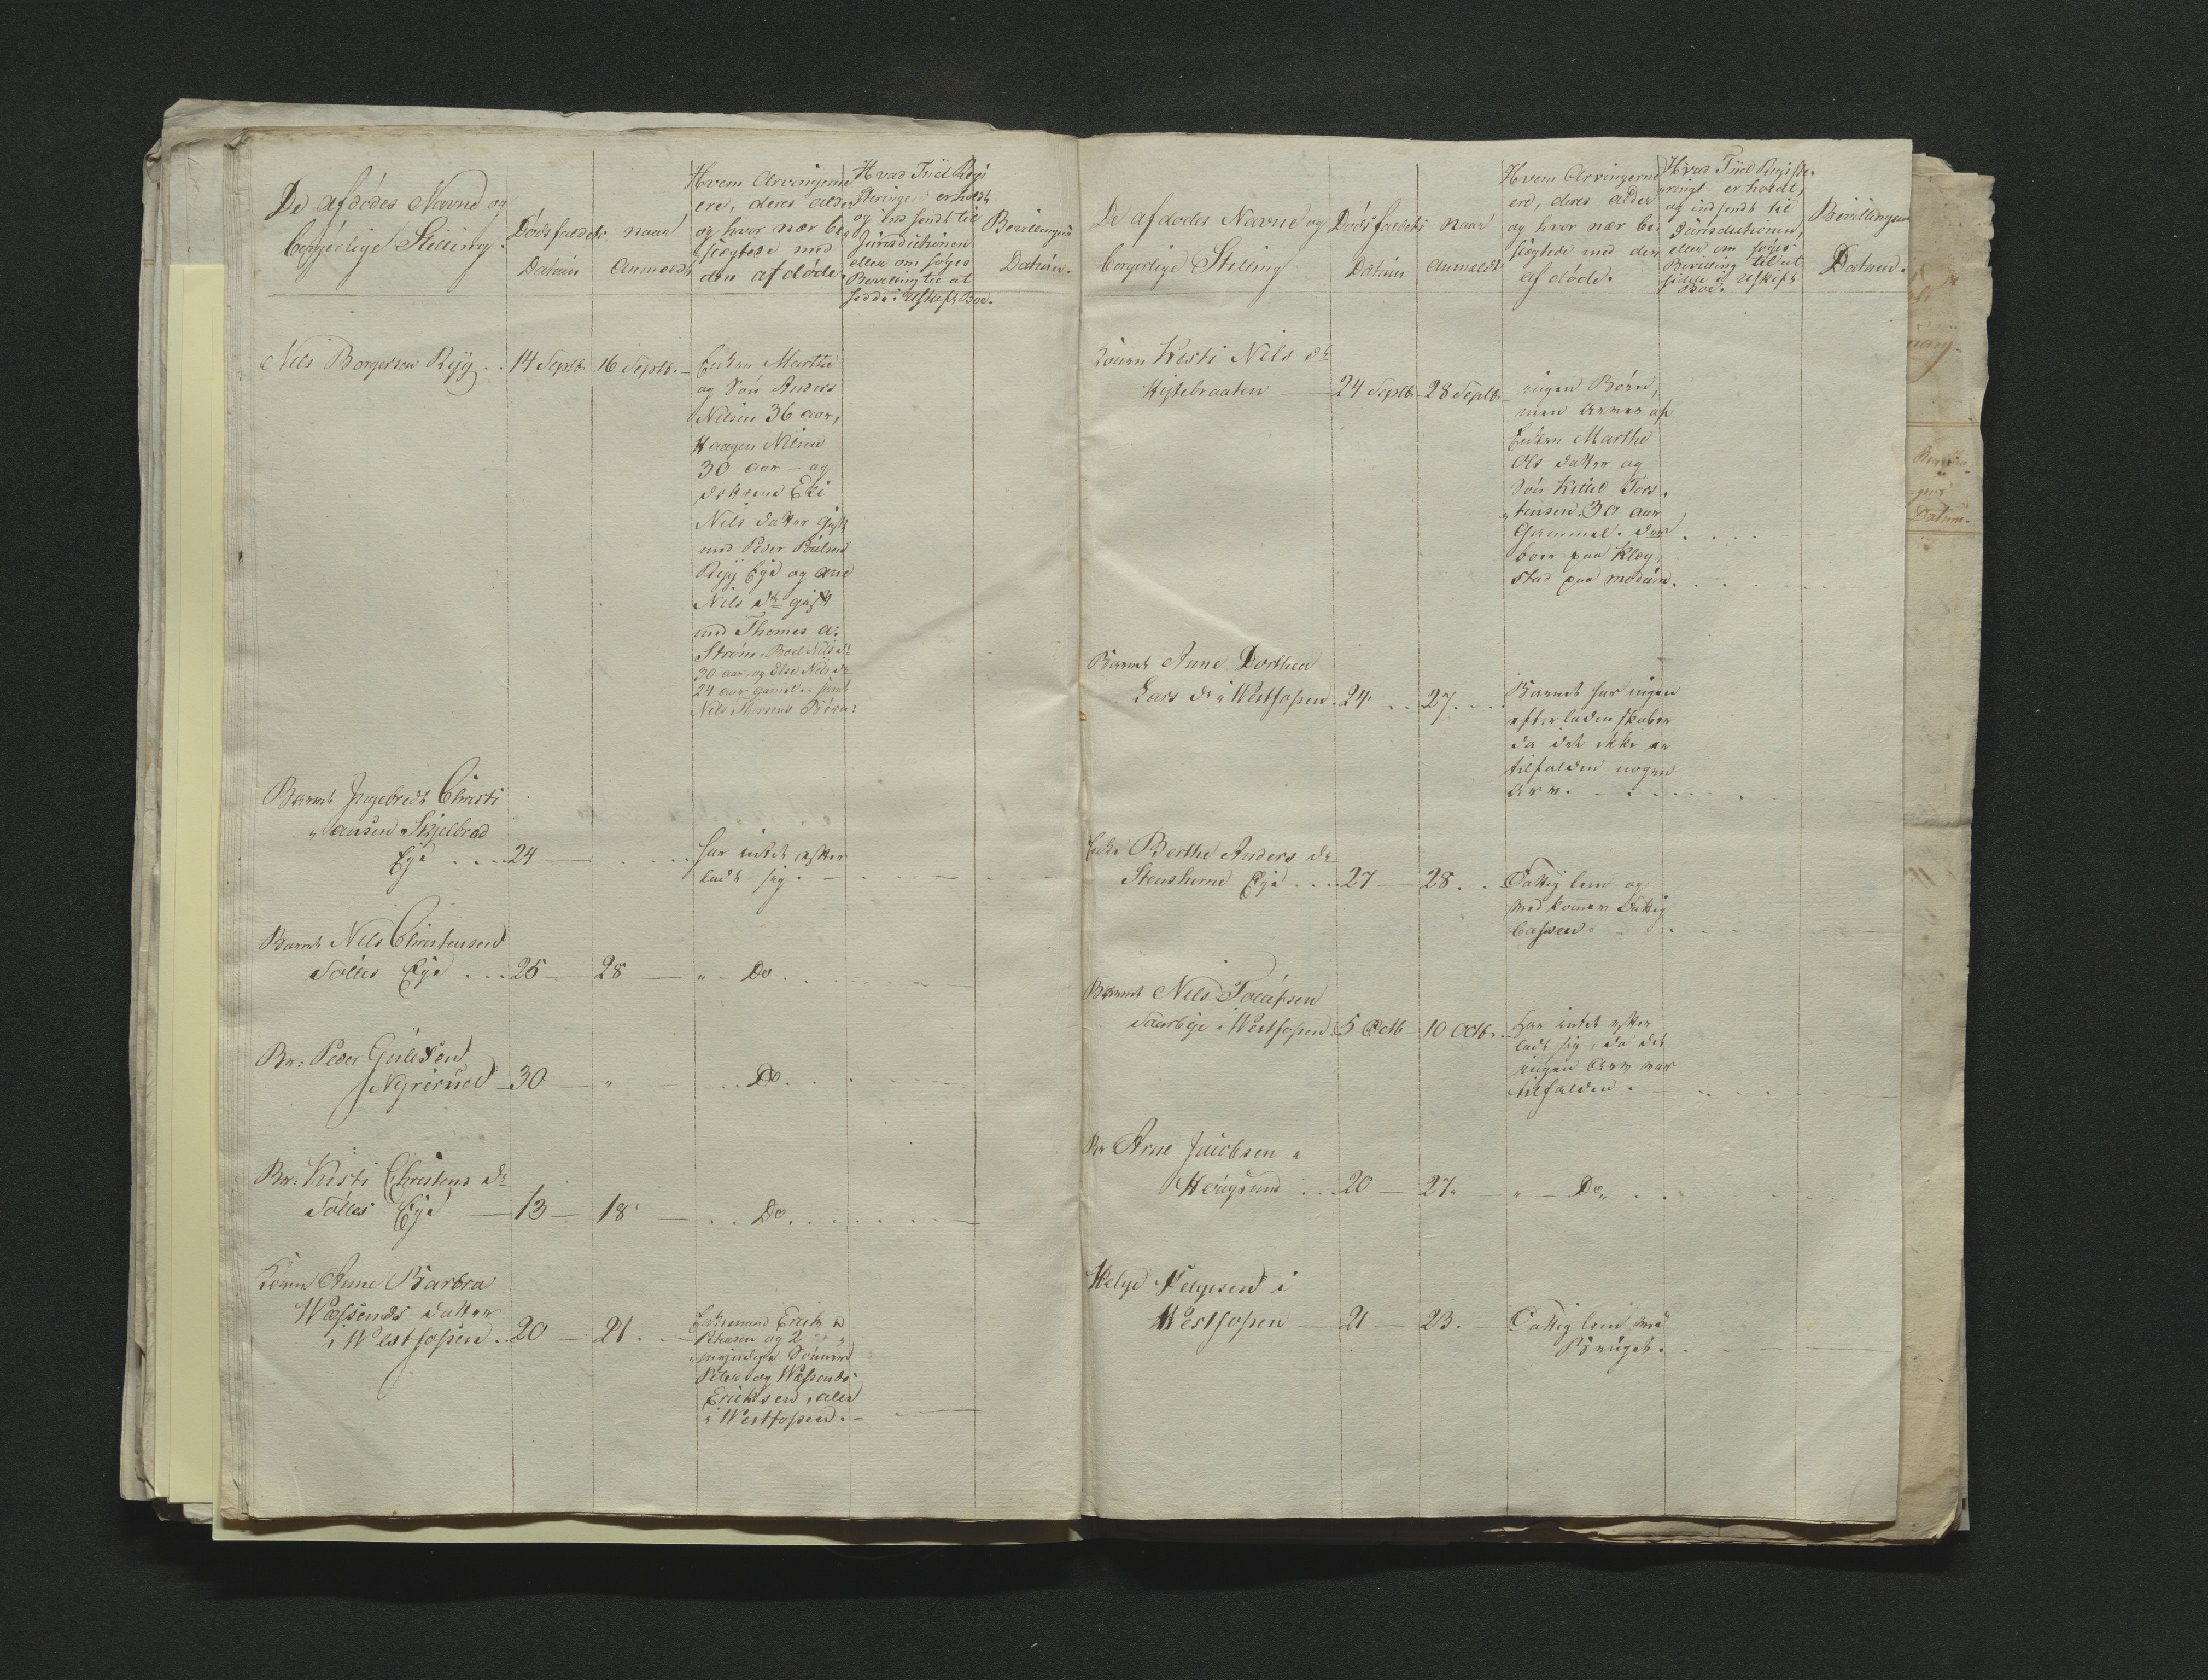 De afdødes Navne og
borgerlige Stilling.
Dødsfaldets
Datum
naar
Anmeldt
Hvem Arvingerne
ere, deres alder
og hvor nær be-
slægtede med
den afdøde.
Hvad Tiid Regi
steringen er holdt
og ind sendt til
Jurisdictionen
eller om søges
Bevilling til at
sidde i Uskift Boe.
Bevillingens
Datum.
Nils Borgersen Ryg . . 14 Septb. 16 Septb. – Enken Marthe
og Søn Anders
Nilsen 36 aar,
Haagen Nilsen
30 aar – og
døttrene Eli
Nils datter gift
med Peder Paulsen
Ryg Eje og Ane
Nils dr gift
med Thomas a:
Strøm, Boel Nils dr
30 aar, og Else Nils dr
24 aar gamel. samt
Nils Børn:
Barnet Ingebredt Christi
ansen Skjelbred
Eje . . . . 24 – har intet efter
ladt sig.
Barnet Nils Christensen
Eje . . . 25 – 28 – " – Do.
Br: Peder Gulesen
30 – " . . Do.
Br: Kisti Christens dr
Eje – 13 – 18 – . . Do.
Konen Anne Barbra
datter
i Westfossen . . 20 – 21. . Enkemand Erich
og 2
myndige Sønner
Peter og
Erichsen, alle
i Westfossen.
De afdødes Navne og
borgerlige Stilling
Dødsfaldets
Datum
Naar
Anmeldt
Hvem Arvingerne
ere, deres alder
og hvor nær be-
slægtede med den
afdøde.
Hvad Tiid Registe-
ringe er holdt,
og indsendt til
Jurisdictionen,
eller om søges
Bevilling til at
sidde i Uskift
Boe.
Bevillingens
Datum.
Konen Kisti Nils dr
Hystebraaten – 24 Septb. 28 Septb. – ingen Børn,
men Arves af
Enken Marthe
Ols datter og
Søn Kittel Tors
tensen 30 aar
Gammel. der
boer paa Kleg
stad paa Modum.
Barnet Anne Dorthea
Lars dr i Westfossen. 24. . . 27. Barnet har ingen
efterladenskaber
da det ikke er
tilfalden nogen
Arv.
Enke Berthe Anders dr
Eje . . . . 27 – 28. . Fattig lem og
vedkommer Fattig
Cassen.
Barnet Nils
i Westfossen. 5 Octb – 10 Octb. . Har intet efter
ladt sig, da det
ingen Arv var
tilfalden.
Br Arne Jacobsen i
Haugsund . . . 20 – 27. – " – Do.
Helge Helgesen i
Westfossen – 21 – 23. – Fattig lem